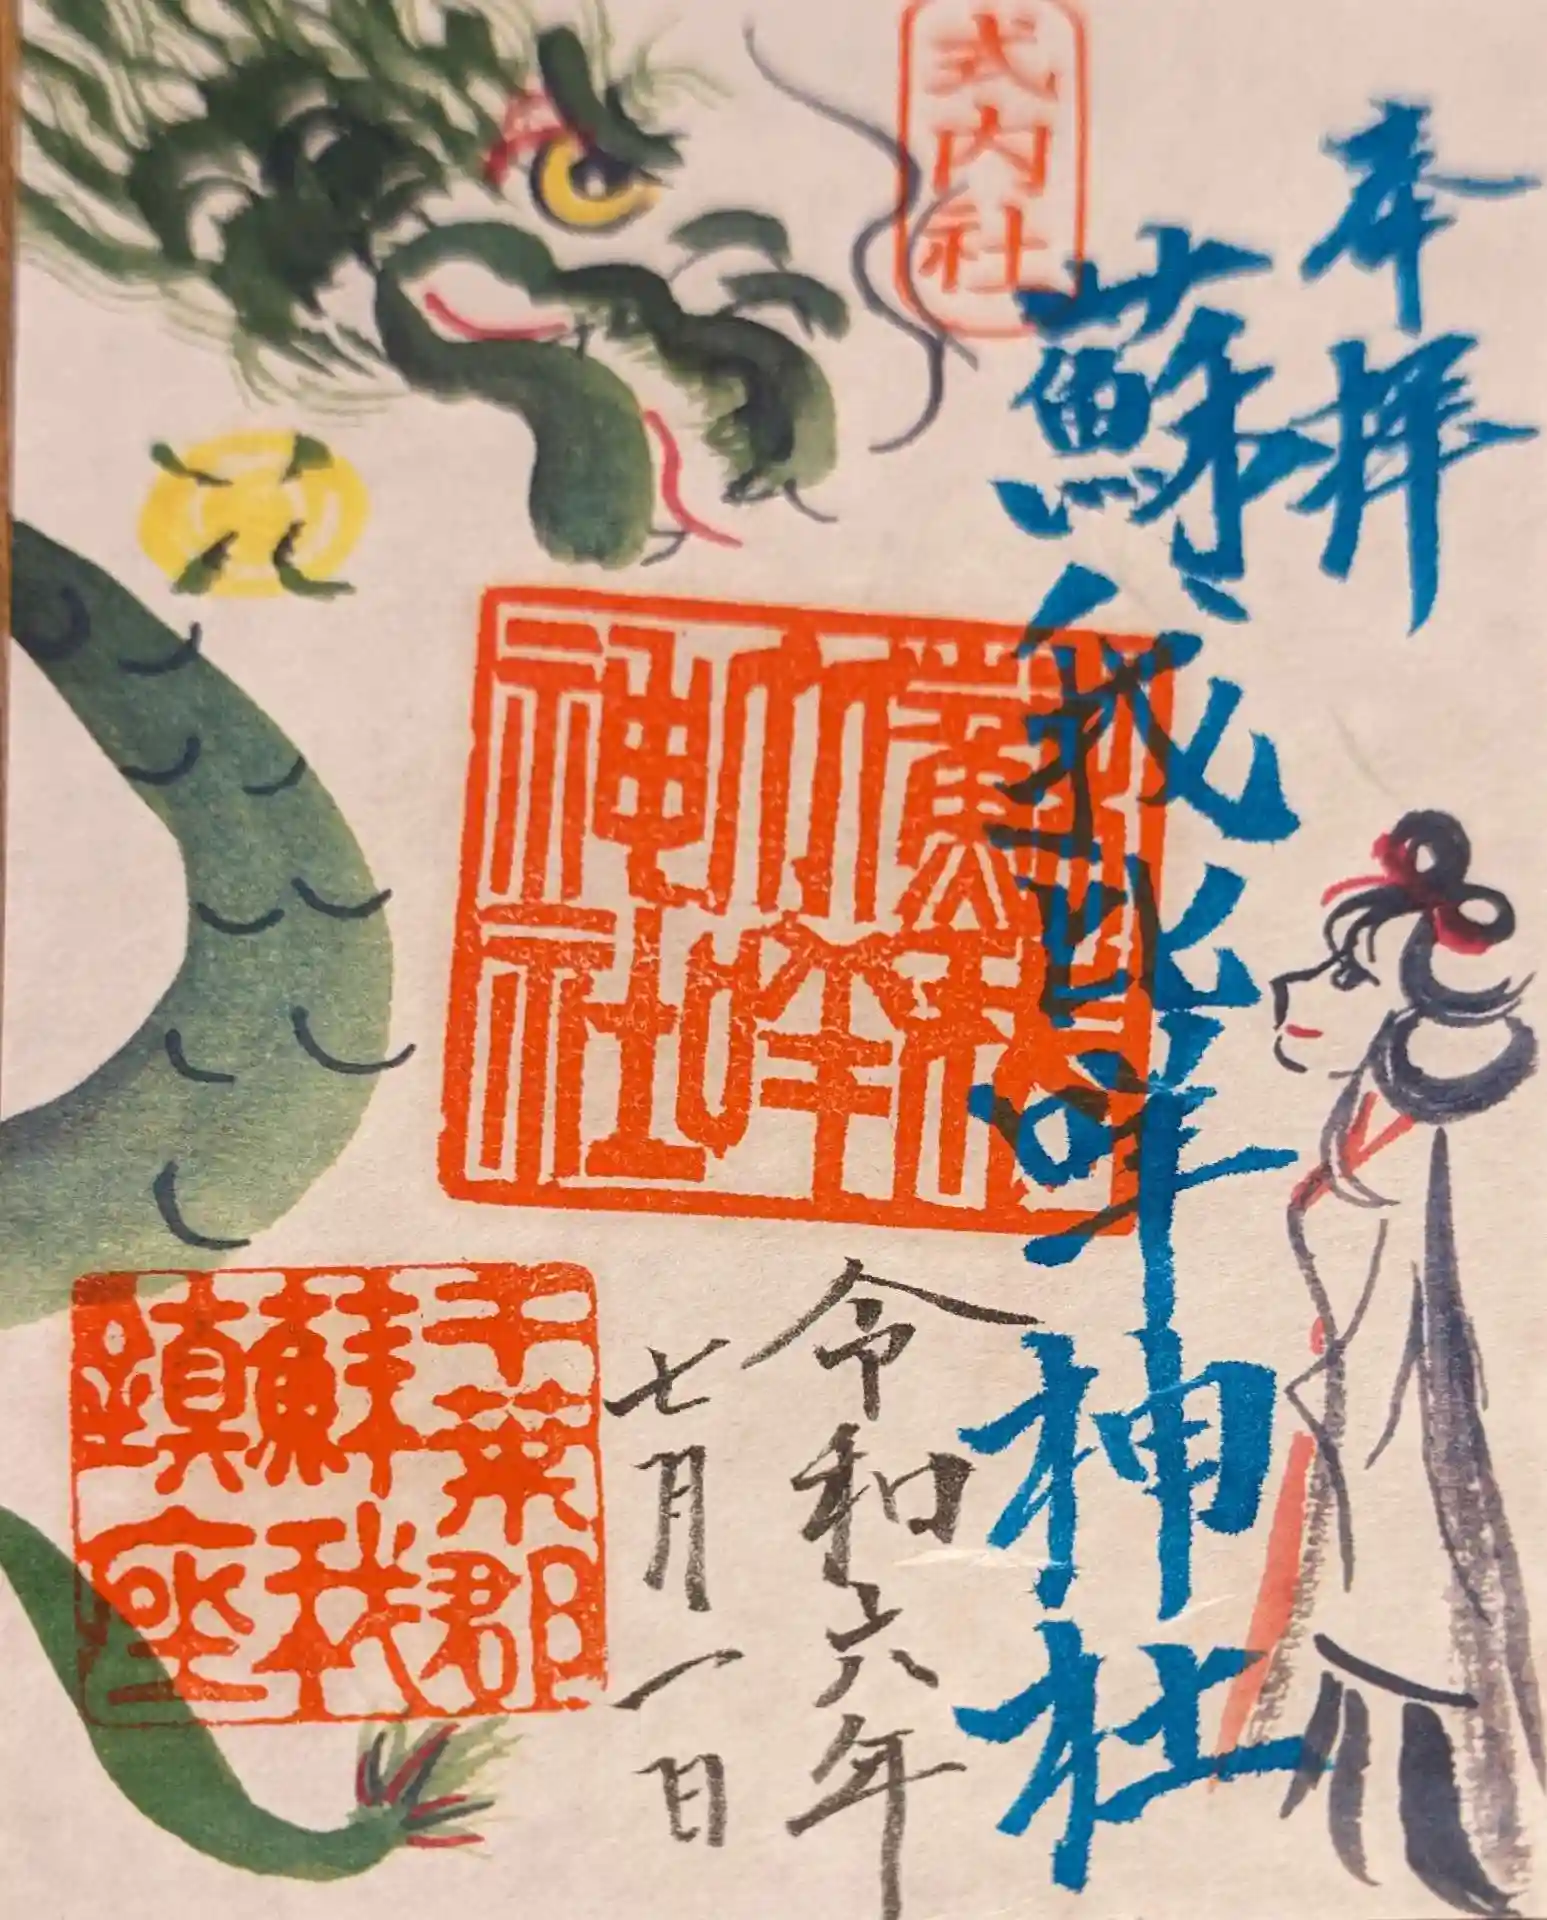 奉拝
蘇我比咩神社
式内社
蘇我比咩神社
令和六年
七月一日
千葉郡
蘇我
鎮座